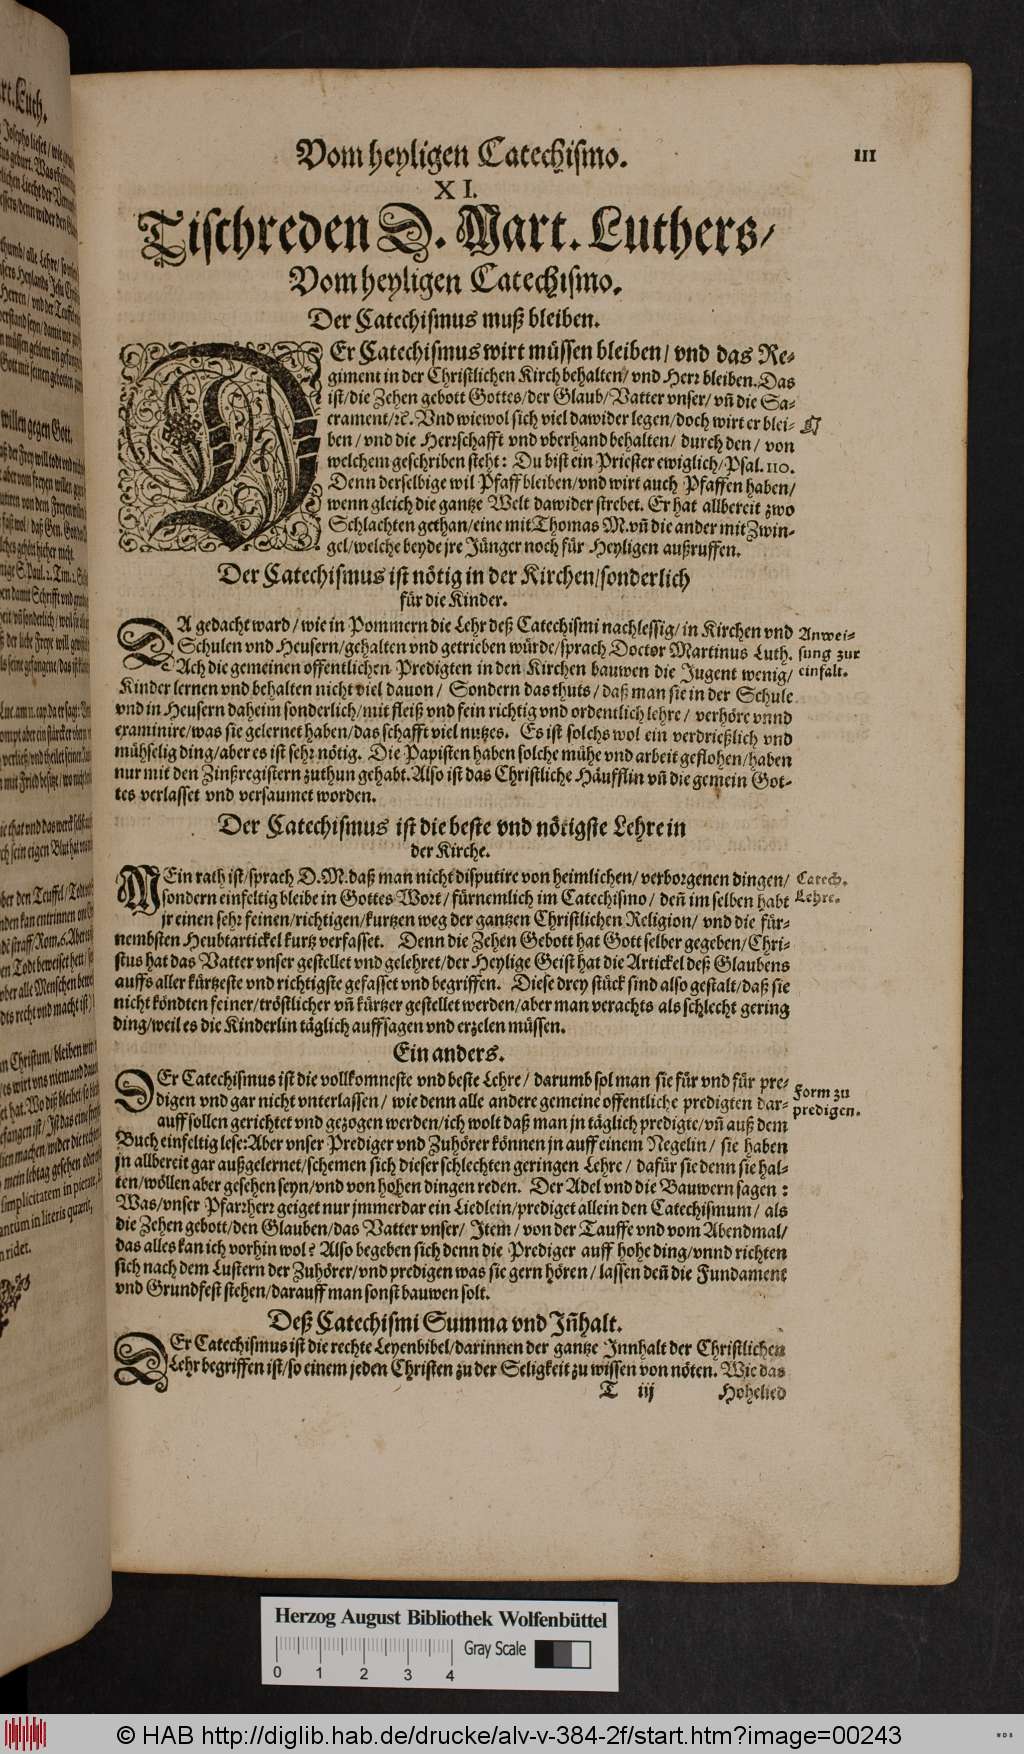 Vom heyligen Catechismo. 111
XI.
Tischreden D. Mart. Luthers/
Vom heyligen Catechismo.
Der Catechismus muß bleiben.
DEr Catechismus wirt müssen bleiben/ vnd das Re-
giment in der Christlichen Kirch behalten/ vnd Herr bleiben. Das
ist/ die Zehen gebott Gottes/ der Glaub/ Vatter vnser/ vñ die Sa-
crament/ ꝛc. Vnd wiewol sich viel dawider legen/ doch wirt er blei-
ben/ vnd die Herrschafft vnd vberhand behalten/ durch den/ von
welchem geschriben steht: Du bist ein Priester ewiglich/ Psal. 110.
Denn derselbige wil Pfaff bleiben/ vnd wirt auch Pfaffen haben/
wenn gleich die gantze Welt dawider strebet. Er hat allbereit zwo
Schlachten gethan/ eine mit Thomas M. vñ die ander mit Zwin-
gel/ welche beyde jre Jünger noch für Heyligen außruffen.
Der Catechismus ist nötig in der Kirchen/ sonderlich
für die Kinder.
DA gedacht ward/ wie in Pommern die Lehr deß Catechismi nachlessig/ in Kirchen vnd
Schulen vnd Heusern/ gehalten vnd getrieben würde/ sprach Doctor Martinus Luth.
Ach die gemeinen offentlichen Predigten in den Kirchen bauwen die Jugent wenig/
Kinder lernen vnd behalten nicht viel dauon/ Sondern das thuts/ daß man sie in der Schule
vnd in Heusern daheim sonderlich/ mit fleiß vnd fein richtig vnd ordentlich lehre/ verhöre vnnd
examinire/ was sie gelernet haben/ das schafft viel nutzes. Es ist solchs wol ein verdrießlich vnd
mühselig ding/ aber es ist sehr nötig. Die Papisten haben solche mühe vnd arbeit geflohen/ haben
nur mit den Zinßregistern zuthun gehabt. Also ist das Christliche Häufflin vñ die gemein Got-
tes verlasset vnd versaumet worden.
Anwei-
sung zur
einfalt.
Der Catechismus ist die beste vnd nötigste Lehre in
der Kirche.
MEin rath ist/ sprach D. M. daß man nicht disputire von heimlichen/ verborgenen dingen/
sondern einfeltig bleibe in Gottes Wort/ fürnemlich im Catechismo/ deñ im selben habt
jr einen sehr feinen/ richtigen/ kurtzen weg der gantzen Christlichen Religion/ vnd die für-
nembsten Heubtartickel kurtz verfasset. Denn die Zehen Gebott hat Gott selber gegeben/ Chri-
stus hat das Vatter vnser gestellet vnd gelehret/ der Heylige Geist hat die Artickel deß Glaubens
auffs aller kürtzeste vnd richtigste gefasset vnd begriffen. Diese drey stück sind also gestalt/ daß sie
nicht köndten feiner/ tröstlicher vñ kürtzer gestellet werden/ aber man verachts als schlecht gering
ding/ weil es die Kinderlin täglich auffsagen vnd erzelen müssen.
Catech.
Lehre.
Ein anders.
DEr Catechismus ist die vollkomneste vnd beste Lehre/ darumb sol man sie für vnd für pre-
digen vnd gar nicht vnterlassen/ wie denn alle andere gemeine offentliche predigten dar-
auff sollen gerichtet vnd gezogen werden/ ich wolt daß man jn täglich predigte/ vñ auß dem
Buch einfeltig lese: Aber vnser Prediger vnd Zuhörer können jn auff einem Negelin/ sie haben
jn allbereit gar außgelernet/ schemen sich dieser schlechten geringen Lehre/ dafür sie denn sie hal-
ten/ wöllen aber gesehen seyn/ vnd von hohen dingen reden. Der Adel vnd die Bauwern sagen:
Was/ vnser Pfarrherr geiget nur jmmerdar ein Liedlein/ prediget allein den Catechismum/ als
die Zehen gebott/ den Glauben/ das Vatter vnser/ Item/ von der Tauffe vnd vom Abendmal/
das alles kan ich vorhin wol? Also begeben sich denn die Prediger auff hohe ding/ vnnd richten
sich nach dem Lustern der Zuhörer/ vnd predigen was sie gern hören/ lassen deñ die Fundament
vnd Grundfest stehen/ darauff man sonst bauwen solt.
Form zu
predigen.
Deß Catechismi Summa vnd Jñhalt.
DEr Catechismus ist die rechte Leyenbibel/ darinnen der gantze Jnnhalt der Christlichen
Lehr begriffen ist/ so einem jeden Christen zu der Seligkeit zu wissen von nöten. Wie das
T iij Hohelied
Herzog August Bibliothek Wolfenbüttel
Gray Scale
0 1 2 3 4
© HAB http://diglib.hab.de/drucke/alv-v-384-2f/start.htm?image=00243